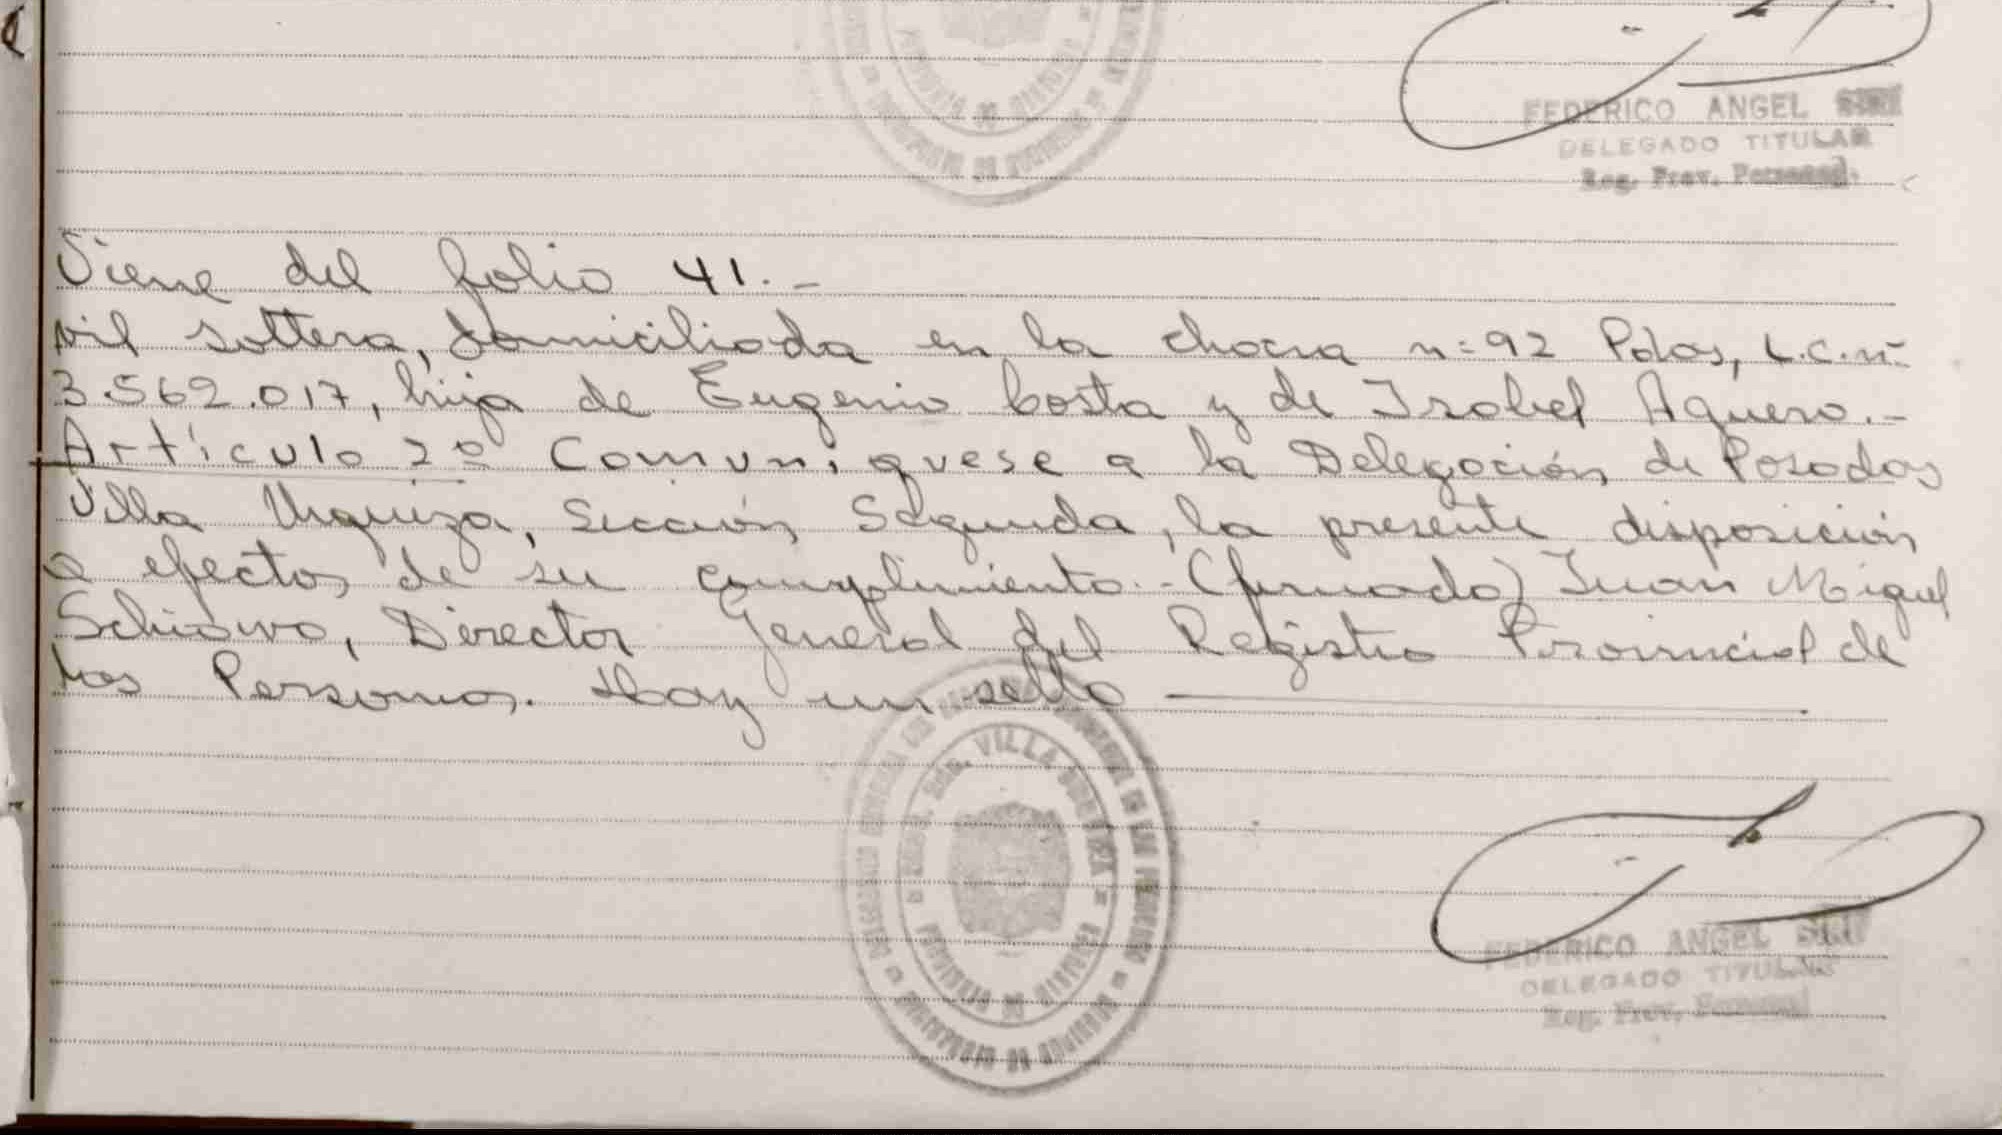 FEDERICO ANGEL
DELEGADO TITULAR
Reg. Prov. Personas
Viene del folio 41.-
vil soltera, domiciliada en la chacra n=92 Pdas, L.C.nº
3.562.017, hija de Eugenio Costa y de Isabel Aquero.-
Artículo 2º Comuníquese a la Delegación de Posadas
Villa Urquiza, Sección Segunda, la presente disposición
a efectos de su cumplimiento.-(firmado) Juan Miguel
Schiavo, Director General del Registro Provincial de
las Personas. Hay un sello
VILLA URQUIZA
PROVINCIA DE MISIONES
FEDERICO ANGEL
DELEGADO TITULAR
Reg. Prov. Personas